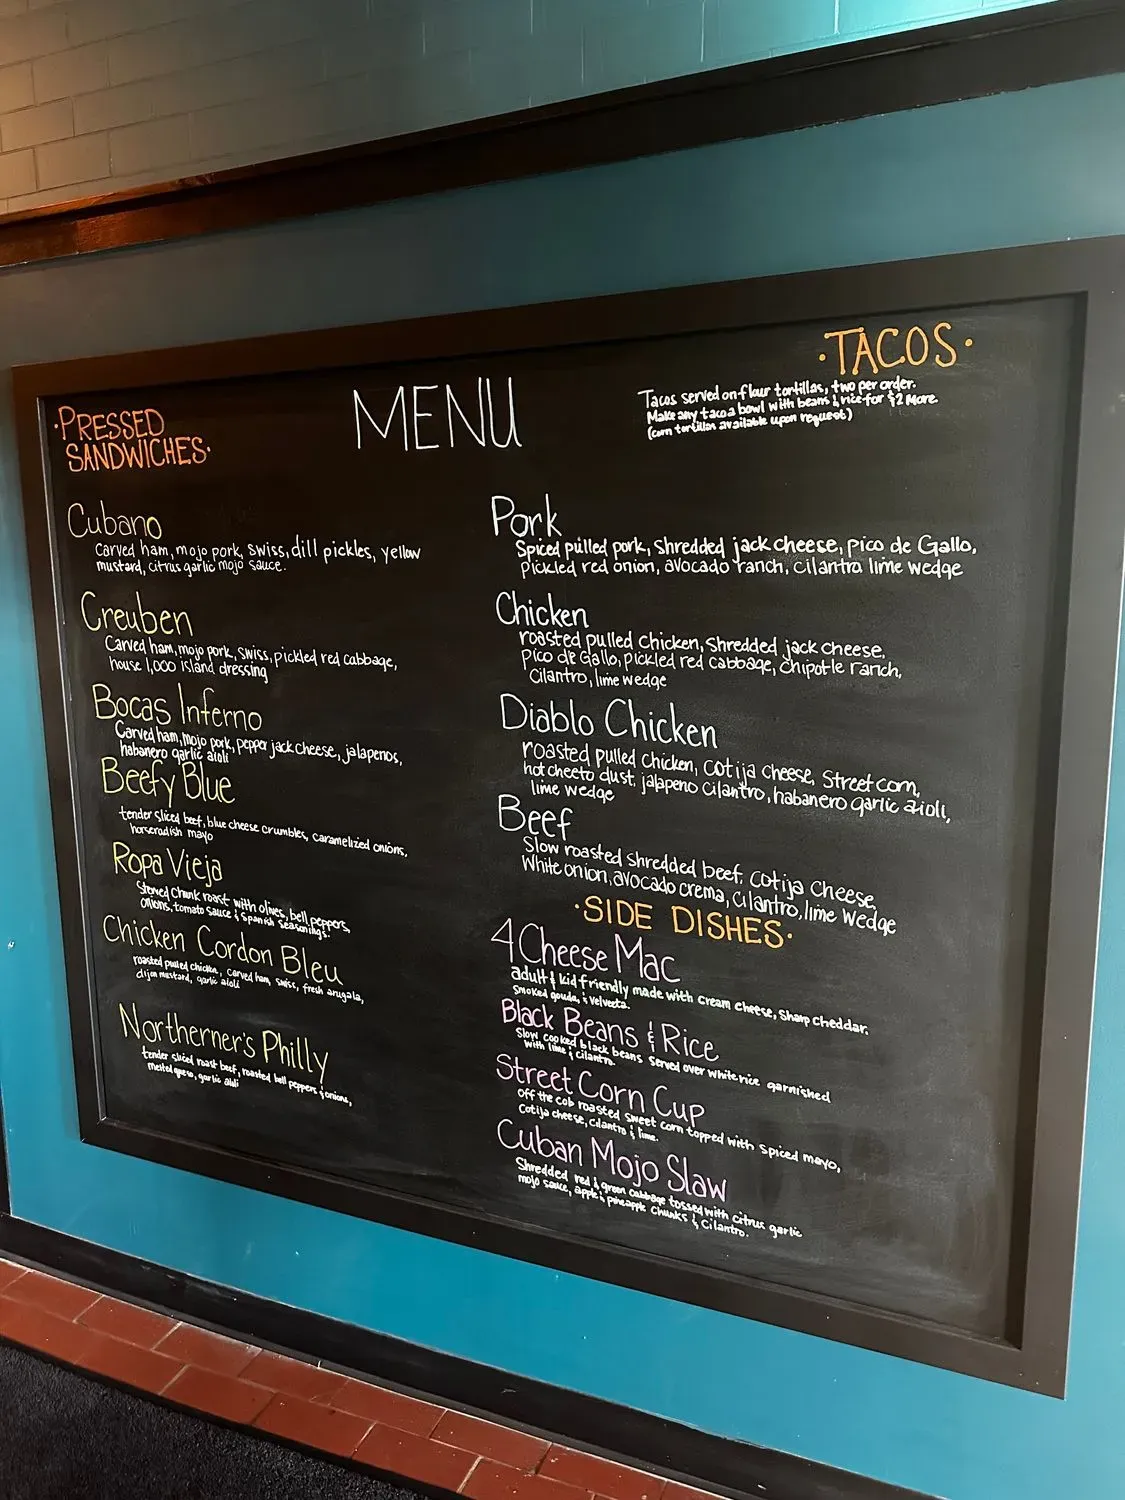 MENU
·PRESSED
SANDWICHES·
Cubano
Carved ham, mojo pork, swiss, dill pickles, yellow
mustard, citrus garlic mojo sauce.
Creuben
Carved ham, mojo pork, swiss, pickled red cabbage,
house 1,000 island dressing
Bocas Inferno
Carved ham, mojo pork, pepper jack cheese, jalapenos,
habanero garlic aioli
Beefy Blue
tender sliced beef, blue cheese crumbles, caramelized onions,
horseradish mayo
Ropa Vieja
Stewed chunk roast with olives, bell peppers,
onions, tomato sauce & Spanish seasonings.
Chicken Cordon Bleu
roasted pulled chicken, carved ham, swiss, fresh arugala,
dijon mustard, garlic aioli
Northerner's Philly
tender sliced roast beef, roasted bell peppers & onions,
melted queso, garlic aioli
·TACOS·
Tacos served on flour tortillas, two per order.
Make any taco a bowl with beans & rice for $2 more.
(corn tortillas available upon request)
Pork
Spiced pulled pork, shredded jack cheese, pico de Gallo,
pickled red onion, avocado ranch, cilantro lime wedge
Chicken
roasted pulled chicken, shredded jack cheese,
pico de Gallo, pickled red cabbage, chipotle ranch,
cilantro, lime wedge
Diablo Chicken
roasted pulled chicken, cotija cheese, street corn,
hot cheeto dust, jalapeno cilantro, habanero garlic aioli,
lime wedge
Beef
Slow roasted shredded beef, cotija cheese,
white onion, avocado crema, cilantro, lime wedge
·SIDE DISHES·
4 Cheese Mac
adult & kid friendly made with cream cheese, sharp cheddar,
smoked gouda, & velveeta.
Black Beans & Rice
Slow cooked black beans served over white rice garnished
with lime & cilantro.
Street Corn Cup
off the cob roasted sweet corn topped with spiced mayo,
Cotija cheese, cilantro & lime.
Cuban Mojo Slaw
Shredded red & green cabbage tossed with citrus garlic
mojo sauce, apple & pineapple chunks & cilantro.